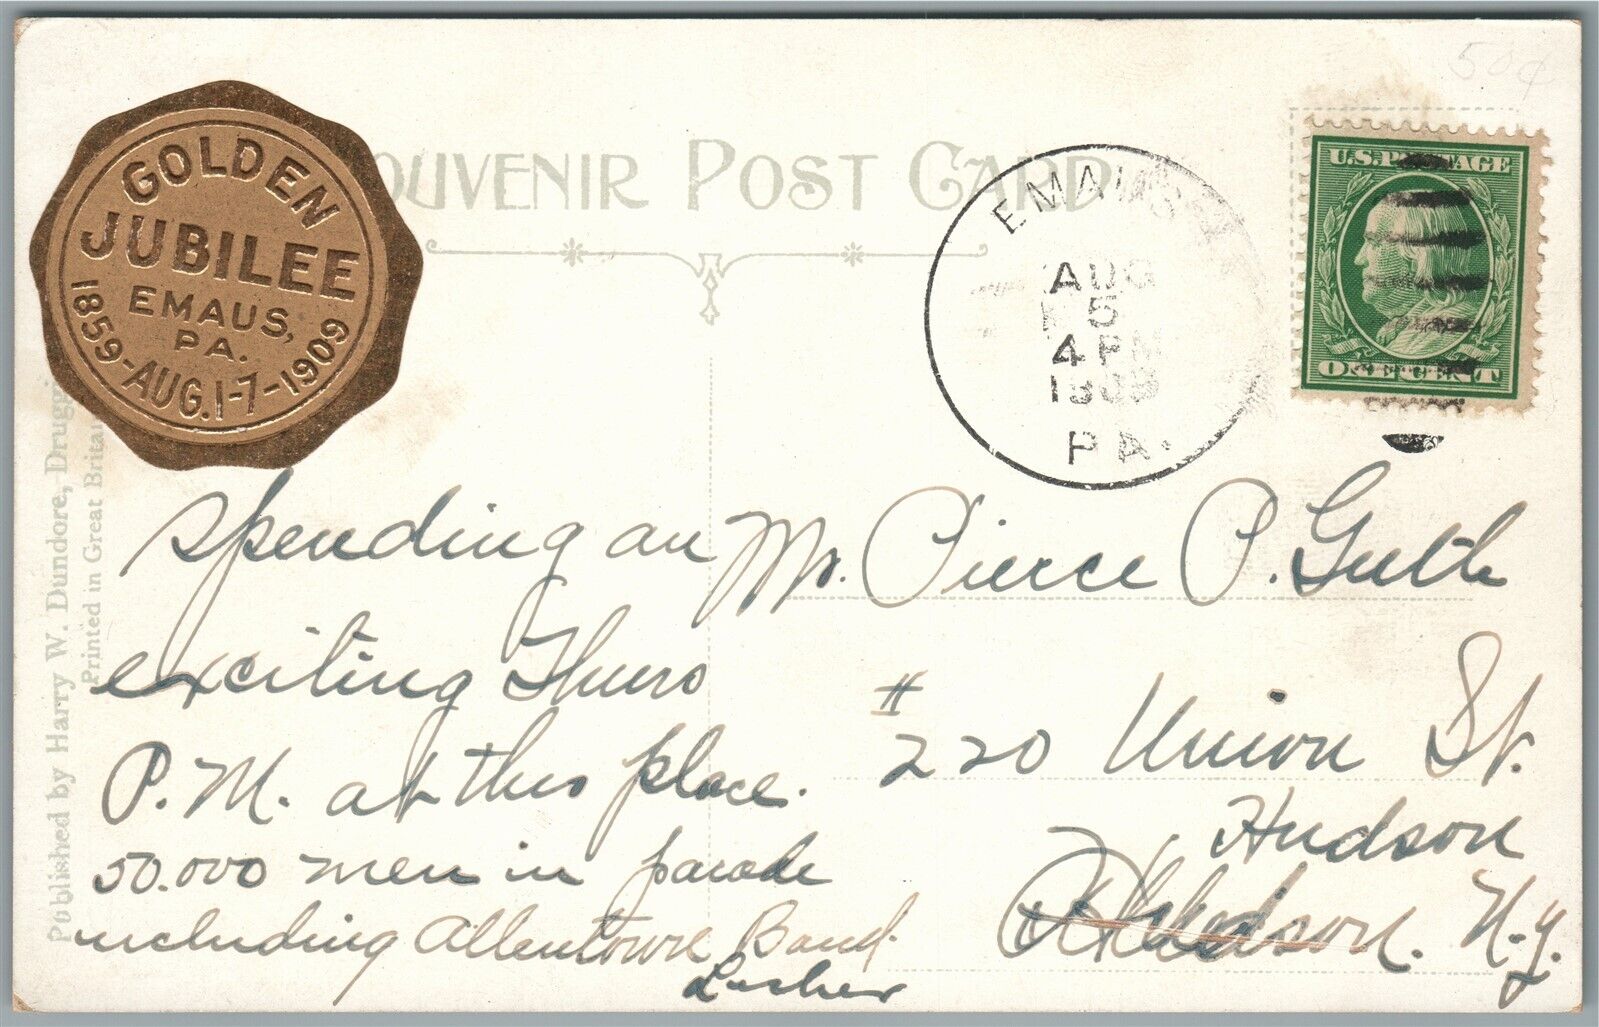 50¢
SOUVENIR POST CARD
GOLDEN
JUBILEE
EMAUS,
PA.
1859-AUG.1-7-1909
EMAUS
AUG
5
4 PM
1909
PA.
U.S. POSTAGE
ONE CENT
Published by Harry W. Dundore, Druggi
Printed in Great Britai
Spending an
exciting Thurs
P.M. at this place.
50.000 men in parade
including Allentown Band.
Lusher
Mr. Pierce P. Guth
# 220 Union St.
Hudson
N.Y.